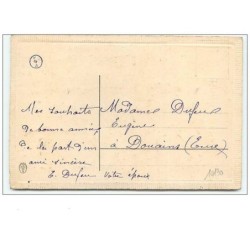 Mes souhaits
de bonne année
de la part d'un
ami sincère
E. Dufour
Madame Dufour
Eugène
à Douains (Eure)
Votre époux